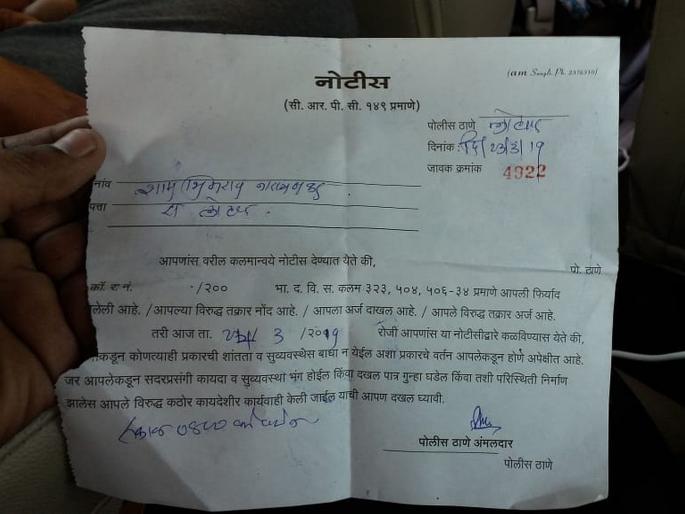 नोटीस
(सी. आर. पी. सी. १४९ प्रमाणे)
पोलीस ठाणे लोणार
दिनांक: 23/3/19
जावक क्रमांक 4922
नांव
पत्ता रा लोणार.
आपणांस वरील कलमान्वये नोटीस देण्यात येते की,
पो. ठाणे
/२०० भा. द. वि. स. कलम ३२३, ५०४, ५०६-३४ प्रमाणे आपली फिर्याद
लेली आहे. /आपल्या विरुद्ध तक्रार नोंद आहे. / आपला अर्ज दाखल आहे. / आपले विरुद्ध तक्रार अर्ज आहे.
तरी आज ता. 3 /२०19 रोजी आपणांस या नोटीसीद्वारे कळविण्यास येते की,
कडून कोणत्याही प्रकारची शांतता व सुव्यवस्थेस बाधा न येईल अशा प्रकारचे वर्तन आपलेकडून होणे अपेक्षीत आहे.
जर आपलेकडून सदरप्रसंगी कायदा व सुव्यवस्था भंग होईल किंवा दखल पात्र गुन्हा घडेल किंवा तशी परिस्थिती निर्माण
झालेस आपले विरुद्ध कठोर कायदेशीर कार्यवाही केली जाईल याची आपण दखल घ्यावी.
पोलीस ठाणे अंमलदार
पोलीस ठाणे